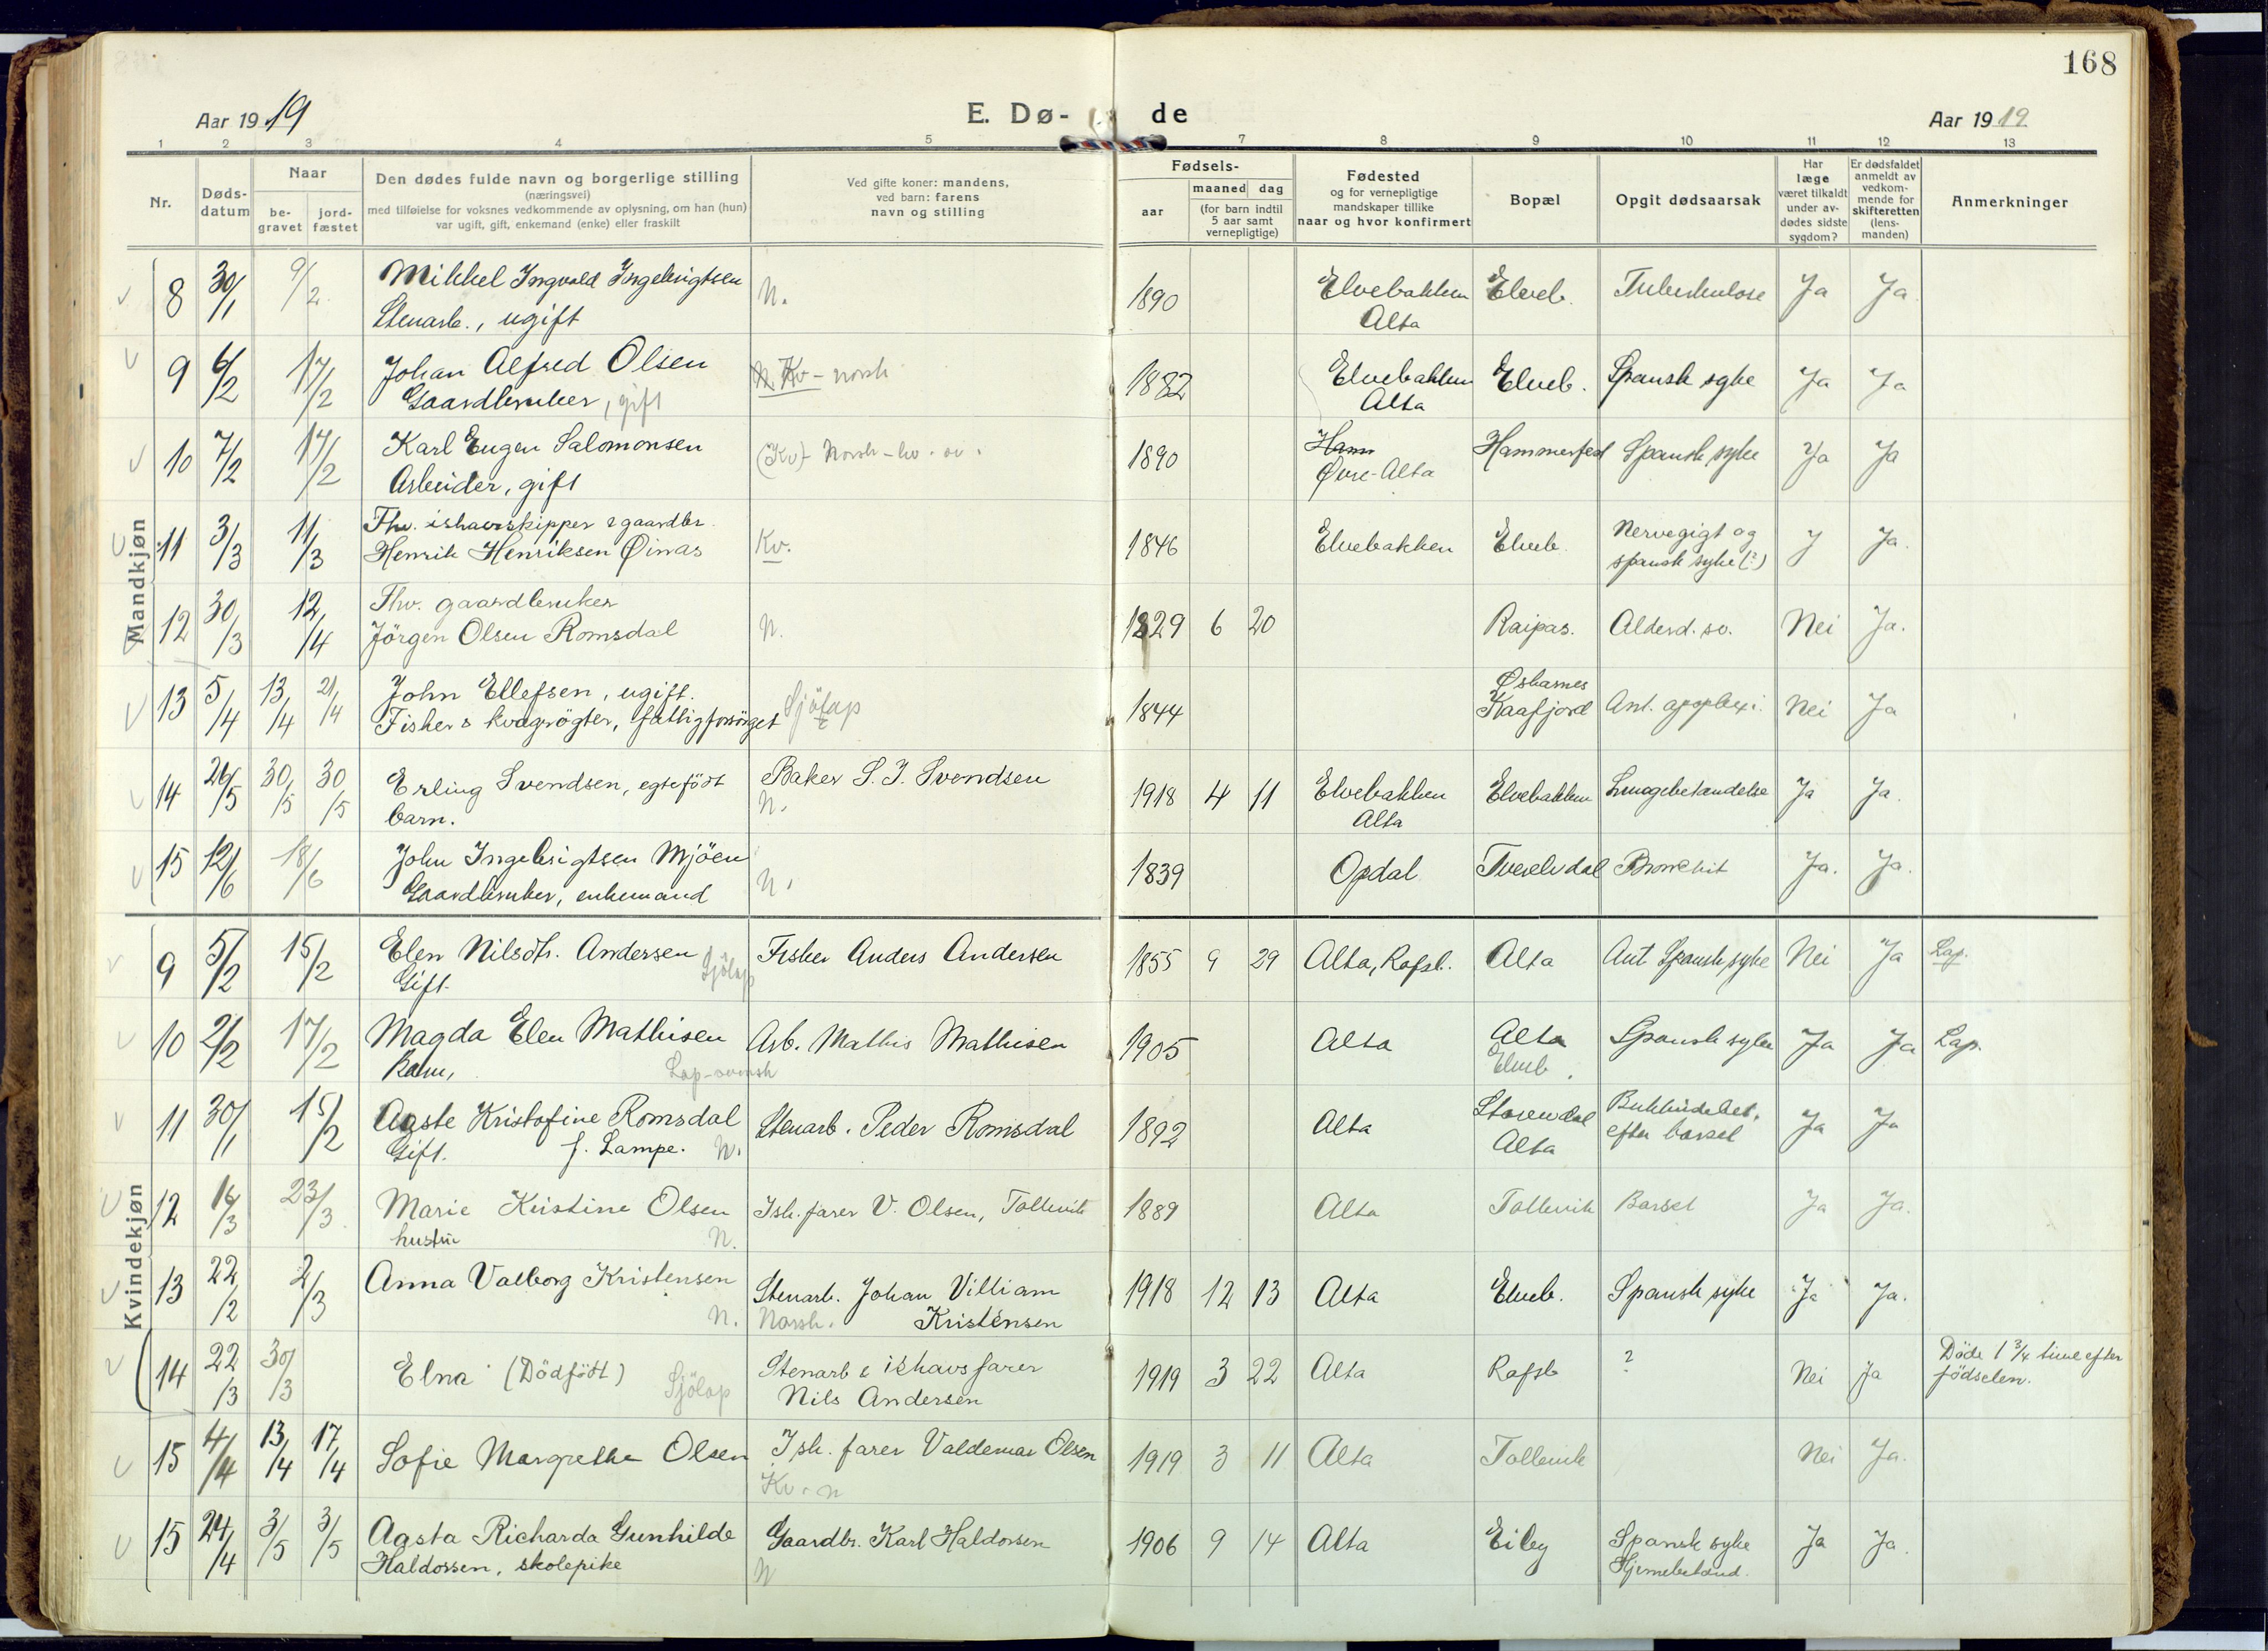 168
Aar 1919
E. Dø-
de
Aar 1919
1 2 3 4 5 7 8 9 10 11 12 13
Nr.
Døds-
datum
Naar
be-
gravet
jord-
fæstet
Den dødes fulde navn og borgerlige stilling
(næringsvei)
med tilføielse for voksnes vedkommende av oplysning, om han (hun)
var ugift, gift, enkemand (enke) eller fraskilt
Ved gifte koner: mandens,
ved barn: farens
navn og stilling
Fødsels-
aar
maaned dag
(for barn indtil
5 aar samt
vernepligtige)
Fødested
og for vernepligtige
mandskaper tillike
naar og hvor konfirmert
Bopæl
Opgit dødsaarsak
Har
læge
været tilkaldt
under av-
dødes sidste
sygdom?
Er dødsfaldet
anmeldt av
vedkom-
mende for
skifteretten
(lens-
manden)
Anmerkninger
Mandkjøn
8 30/1 9/2 Mikkel Ingvald Ingebrigtsen N. 1890 Elvebakken Elveb. Tuberkulose Ja Ja
Stenarb., ugift Alta
9 6/2 17/2 Johan Alfred Olsen N. Kv - norsk 1882 Elvebakken Elveb. Spansk syke Ja Ja
Gaardbruker, gift Alta
10 7/2 17/2 Karl Eugen Salomonsen (Kv) - Norsk - kv. 1890 Ham Hammerfest Spansk syke Ja Ja
Arbeider, gift Øvre-Alta
11 3/3 11/3 Fhv. ishavsskipper & gaardbr.
Henrik Henriksen Øinas Kv. 1846 Elvebakken Elveb. Nervegigt og J Ja.
spansk syke (?)
12 30/3 12/4 Fhv. gaardbruker
Jörgen Olsen Romsdal N. 1829 6 20 Raipas. Alderd. sv. Nei Ja.
13 5/4 13/4 21/4 John Ellefsen, ugift. Sjölap 1844 Øskarnes Ant. apoplexi. Nei Ja
Fisker & kvægrögter, fattigforsörget Kaafjord
14 26/5 30/5 30/5 Erling Svendsen, egtefödt Baker S. J. Svendsen 1918 4 11 Elvebakken Elvebakken Lungebetændelse Ja Ja.
barn. N. Alta
15 12/6 18/6 John Ingebrigtsen Mjöen N. 1839 Opdal Tverelvdal Bronchit Ja. Ja.
Gaardbruker, enkemand
Kvindekjøn
9 5/2 15/2 Elen Nilsdtr. Andersen Sjölap Fisker Anders Andersen 1855 9 29 Alta, Rafsb. Alta Ant Spansk syke Nei Ja Lap.
Gift.
10 2/2 17/2 Magda Elen Mathisen Arb. Mathis Mathisen 1905 Alta Alta Spansk syke Ja Ja Lap.
Barn, Lap-svensk Elveb.
11 30/1 15/2 Agste Kristofine Romsdal Stenarb. Peder Romsdal 1892 Alta Storevdal Bukhindebet. Ja Ja
Gift. f. Lampe. N. Alta efter barsel
12 16/3 23/3 Marie Kristine Olsen Ish. farer V. Olsen, Tollevik 1889 Alta Tollevik Barsel Ja Ja.
hustru N.
13 22/2 2/3 Anna Valborg Kristensen Stenarb. Johan Villiam 1918 12 13 Alta Elveb. Spansk syke Ja Ja.
N. Norsk. Kristensen
14 22/3 30/3 Elna (Dödfödt) Sjölap Stenarb & ishavsfarer 1919 3 22 Alta Rafsb ? Nei Ja Döde 1 3/4 time efter
Nils Andersen födselen.
15 4/4 13/4 17/4 Sofie Margrethe Olsen Ish. farer Valdemar Olsen 1919 3 11 Alta Tollevik Nei Ja.
Kv. n
15 24/4 3/5 3/5 Agsta Richarda Gunhilde Gaardbr. Karl Haldorsen 1906 9 14 Alta Eiby Spansk syke Ja Ja.
Haldorsen, skolepike N Hjernebetænd.